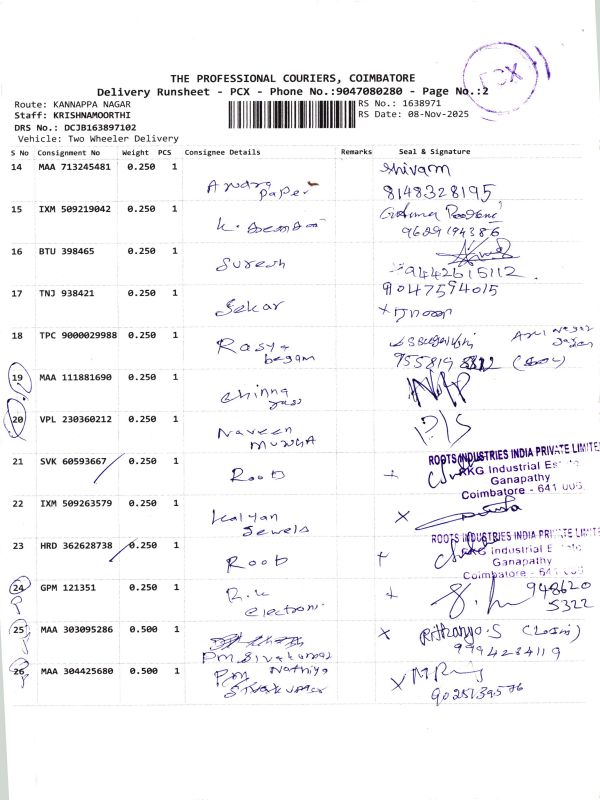 PCX
THE PROFESSIONAL COURIERS, COIMBATORE
Delivery Runsheet - PCX - Phone No.:9047080280 - Page No.:2
Route: KANNAPPA NAGAR
RS No.: 1638971
Staff: KRISHNAMOORTHI
RS Date: 08-Nov-2025
DRS No.: DCJB163897102
Vehicle: Two Wheeler Delivery
S No Consignment No Weight PCS Consignee Details Remarks Seal & Signature
14 MAA 713245481 0.250 1 Paper Shivam
8148328195
15 IXM 509219042 0.250 1 K.
9629194386
16 BTU 398465 0.250 1 Suresh
9442615112
17 TNJ 938421 0.250 1 Sekar 9047594015
18 TPC 9000029988 0.250 1 Rasya begam
19 MAA 111881690 0.250 1 Chinna
20 VPL 230360212 0.250 1 Naveen
21 SVK 60593667 0.250 1 Root
ROOTS INDUSTRIES INDIA PRIVATE LIMITE
RKG Industrial Estate
Ganapathy
Coimbatore - 641 006.
22 IXM 509263579 0.250 1 Kalyan Jewels
23 HRD 362628738 0.250 1 Root
ROOTS INDUSTRIES INDIA PRIVATE LIMITE
RKG Industrial Estate
Ganapathy
Coimbatore - 641 006
24 GPM 121351 0.250 1 R.K electroni
948620
5322
25 MAA 303095286 0.500 1 P.M. Sivakumar
9994234119
26 MAA 304425680 0.500 1 P.M Nathiya Sivakumar